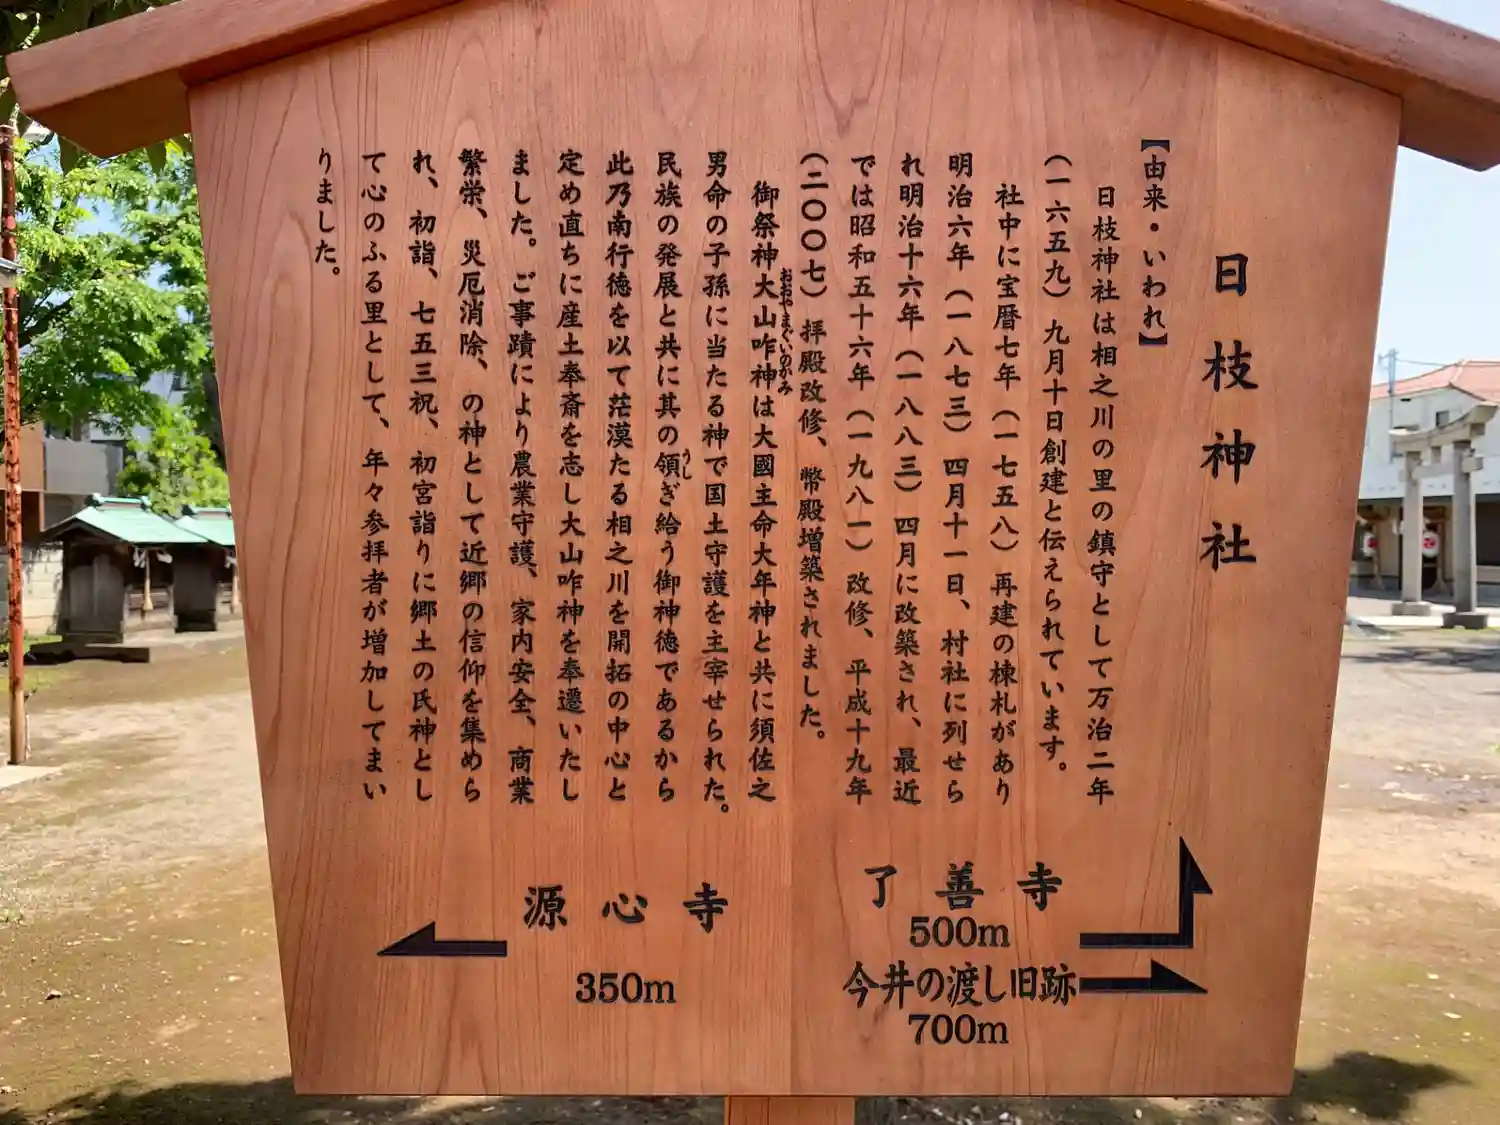 日枝神社
【由来・いわれ】
日枝神社は相之川の里の鎮守として万治二年
(一六五九)九月十日創建と伝えられています。
社中に宝暦七年(一七五八)再建の棟札があり
明治六年(一八七三)四月十一日、村社に列せら
れ明治十六年(一八八三)四月に改築され、最近
では昭和五十六年(一九八一)改修、平成十九年
(二〇〇七)拝殿改修、幣殿増築されました。
御祭神大山咋神は大國主命大年神と共に須佐之
おおやまぐいのかみ
男命の子孫に当たる神で国土守護を主宰せられた。
民族の発展と共に其の領ぎ給う御神徳であるから
うし
此乃南行徳を以て茫漠たる相之川を開拓の中心と
定め直ちに産土奉斎を志し大山咋神を奉遷いたし
ました。ご事蹟により農業守護、家内安全、商業
繁栄、災厄消除、の神として近郷の信仰を集めら
れ、初詣、七五三祝、初宮詣りに郷土の氏神とし
て心のふる里として、年々参拝者が増加してまい
りました。
了善寺
500m
今井の渡し旧跡
700m
源心寺
350m